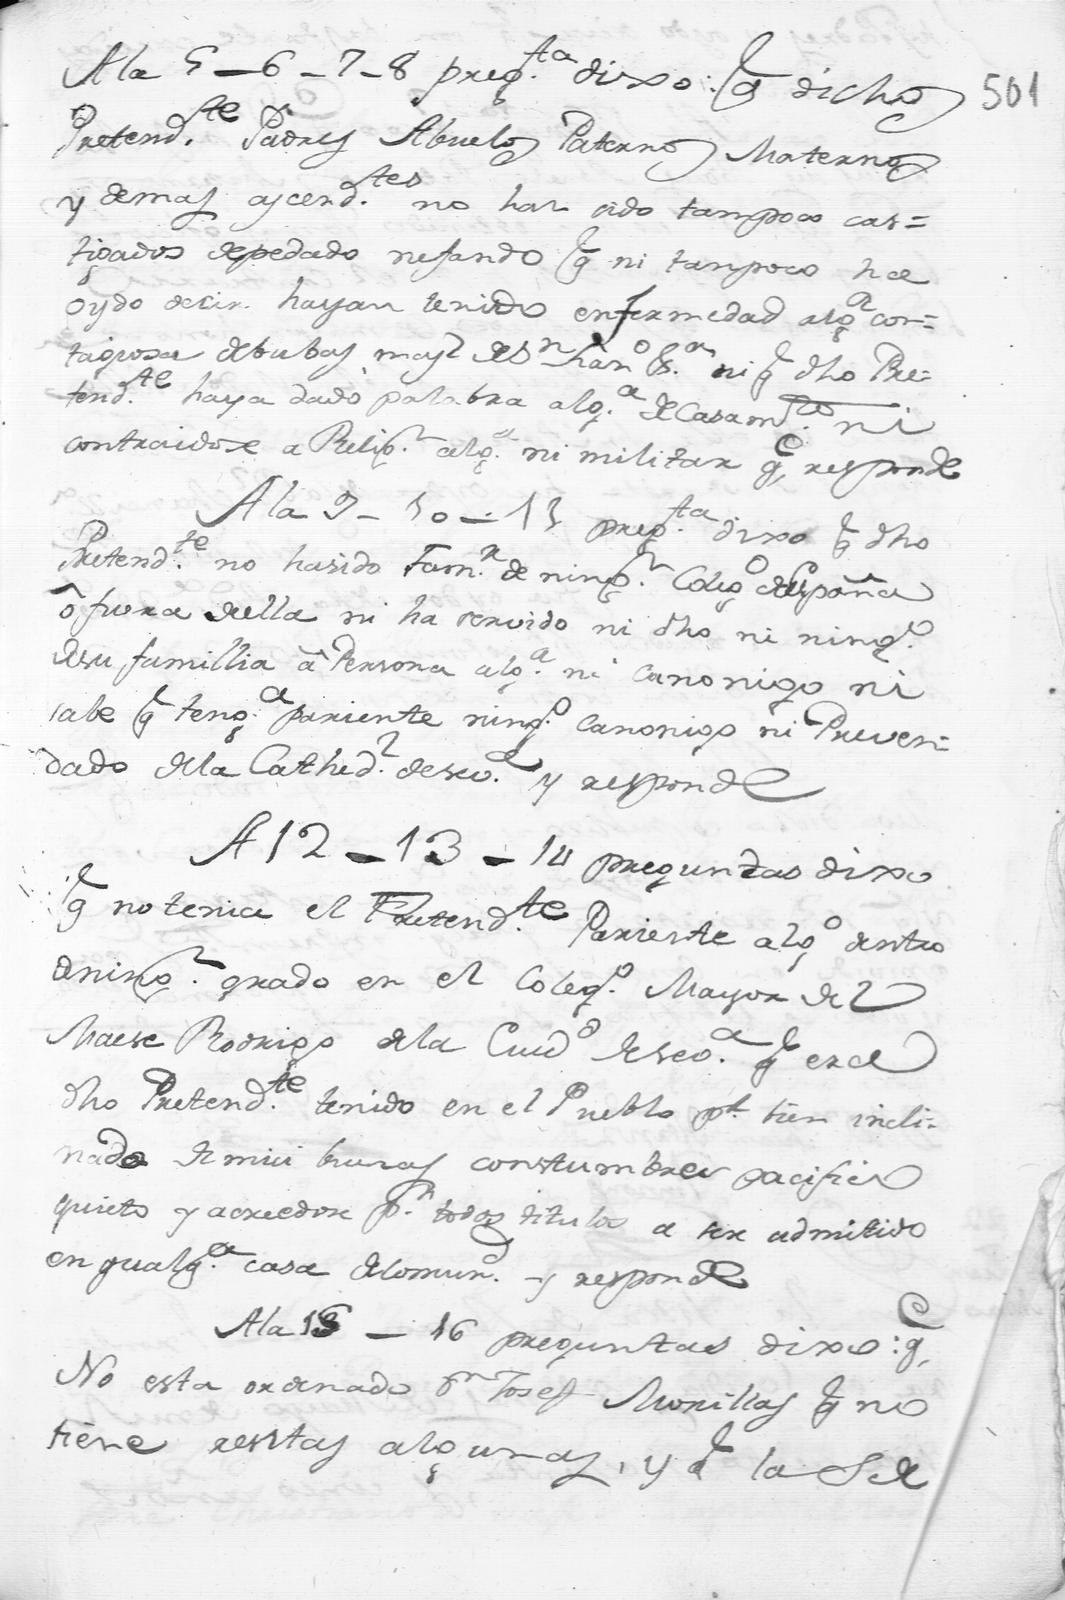 Ala 5 - 6 - 7 - 8 preg.ta dixo: q dichos 501
Pretend.te Padres Abuelos Paternos Maternos
y demas ascend.tes no han sido tampoco cas=
tigados de pedado nefando q ni tampoco ha
oydo decir hayan tenido enfermedad alg.a con=
tagiosa de bubas mal de Sn ni q dho Pre-
tend.te haya dado palabra alg.a de Casam.to ni
contraidose a Relig.n alg.a ni militar q responde
Ala 9 - 10 - 11 preg.ta dixo q dho
Pretend.te no ha sido Fam.r de ning.n Coleg.o de España
ô fuera de ella ni ha servido ni dho ni ning.o
de su famillia â Persona alg.a ni Canonigo ni
sabe q teng.a pariente ning.o Canonigo ni Preven-
dado de la Cathed.l de sev.a y responde
A 12 - 13 - 14 preguntas dixo
q no tenia el Pretend.te Pariente alg.o dentro
de ning.n grado en el Coleg.o Mayor del
Maese Rodrigo de la Ciud.d de sev.a q era el
dho Pretend.te tenido en el Pueblo p.r bien incli-
nado de mui buenas constumbres pacifico
quieto y acreedor p.r todos titulos a ser admitido
en qualq.a casa de Comun.d y responde
Ala 15 - 16 preguntas dixo: q,
No esta ordenado Dn Josef Morillas q no
tiene rentas algunas, y q la Se